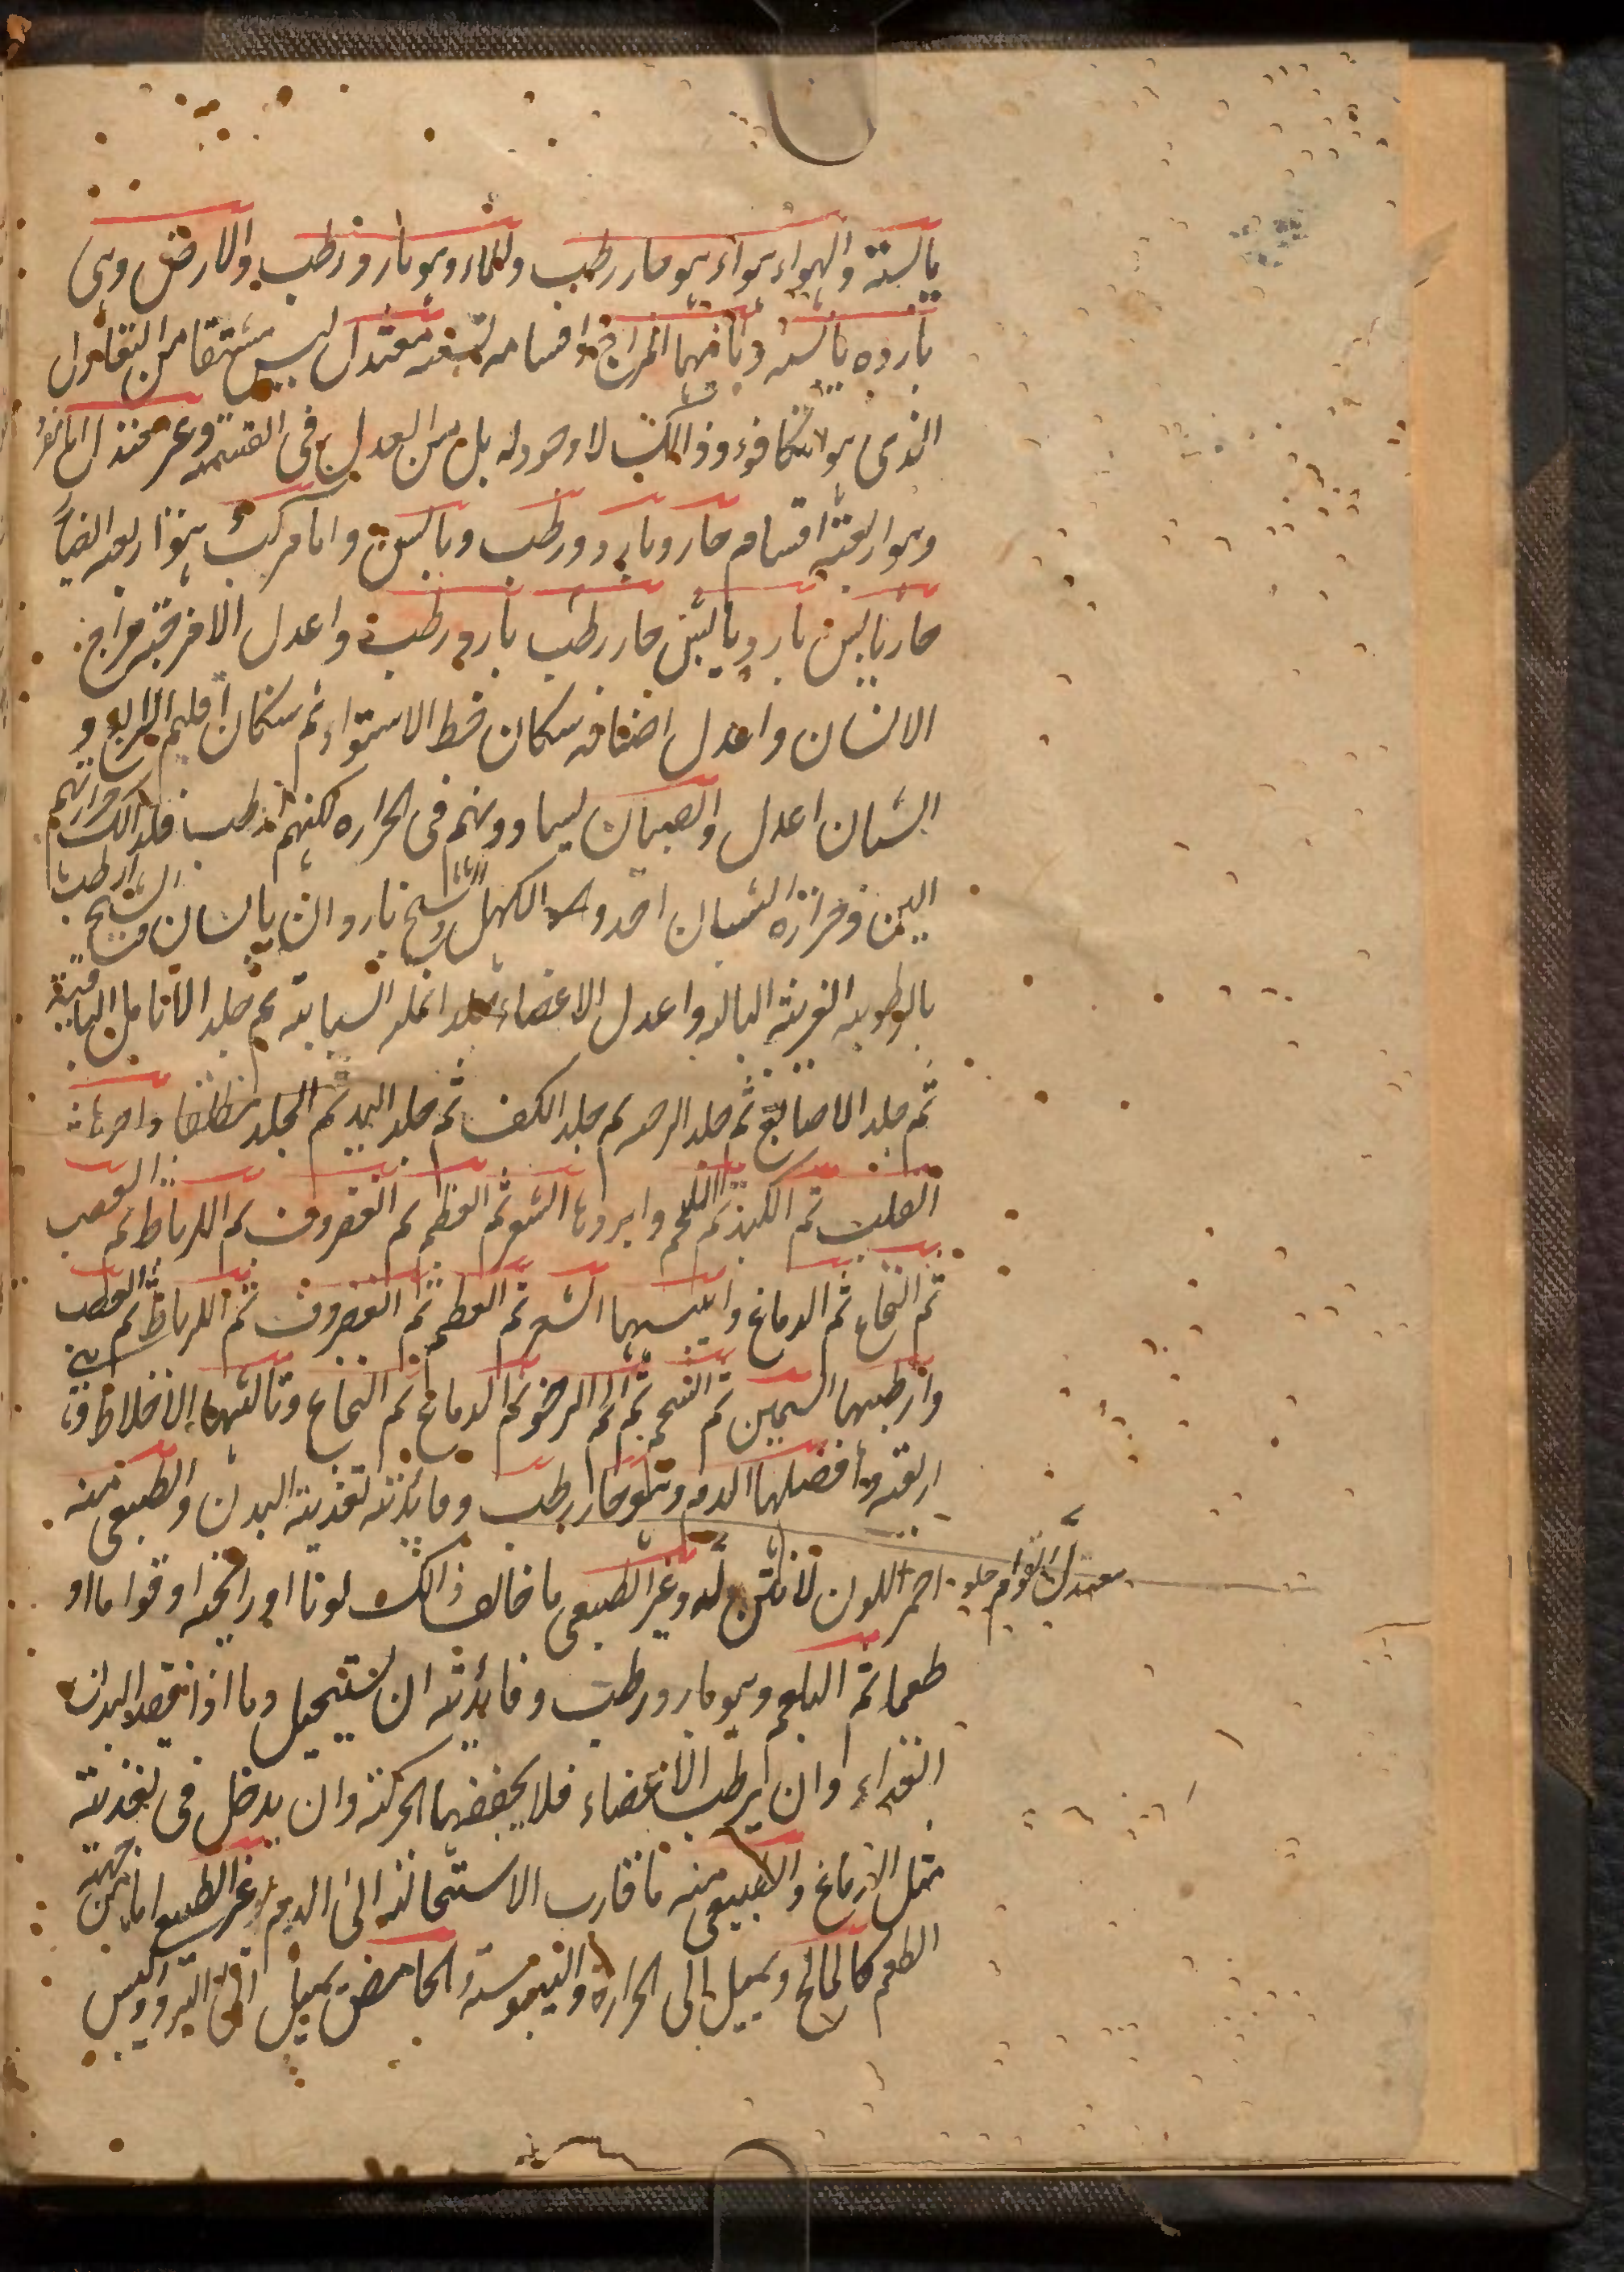 يابسة والهواء هواء هو حار رطب والماء وهو بارد رطب والارض وهي
باردة يابسة وثانيها المزاج واقسامه تسعة معتدل ليس مشتقا من التعادل
الذي هو التكافوء وذالك لا وجود له بل من العدل في القسمة وغير معتدل اما مفرد
وهو اربعة اقسام حار وبارد ورطب ويابس واما مركب هو اربعة ايضاً
حار يابس بارد يابس حار رطب بارد رطب واعدل الامزجة مزاج
الانسان واعدل اصنافه سكان خط الاستواء ثم سكان اقليم الرابع و
الشبان اعدل والصبيان يساوونهم في الحرارة لكنهم ارطب فلذالك حرارتهم
الين وحرارة الشبان احد والكهل والشيخ باردان يابسان والشيخ ارطب
بالرطوبة الغريبة البالة واعدل الاعضاء جلد انملة السبابة ثم جلد الانامل الباقية
ثم جلد الاصابع ثم جلد الراحة ثم جلد الكف ثم جلد اليد ثم الجلد مطلقا واحرها
القلب ثم الكبد ثم اللحم وابردها الشعر ثم العظم ثم الغضروف ثم الرباط ثم العصب
ثم النخاع ثم الدماغ وايبسها الشعر ثم العظم ثم الغضروف ثم الرباط ثم العصب
وارطبها السمين ثم الشحم ثم اللحم الرخو ثم الدماغ ثم النخاع وثالثها الاخلاط وهي
اربعة افضلها الدم وهو حار رطب وفائدته تغذية البدن والطبيعي منه
احمر اللون لا نتن له وغير الطبيعي ما خالف ذالك لونا او رائحة او قواما او
معتدل القوام حلو
طعما ثم البلغم وهو بارد رطب وفائدته ان يستحيل دما اذا فقد البدن
الغذاء وان يرطب الاعضاء فلا يجففها الحركة وان يدخل في تغذية
مثل الدماغ والطبيعي منه ما قارب الاستحالة الى الدم وغير الطبيعي اما من جهة
الطعم كالمالح ويميل الى الحرارة واليبوسة والحامض يميل الى البرد واليبس